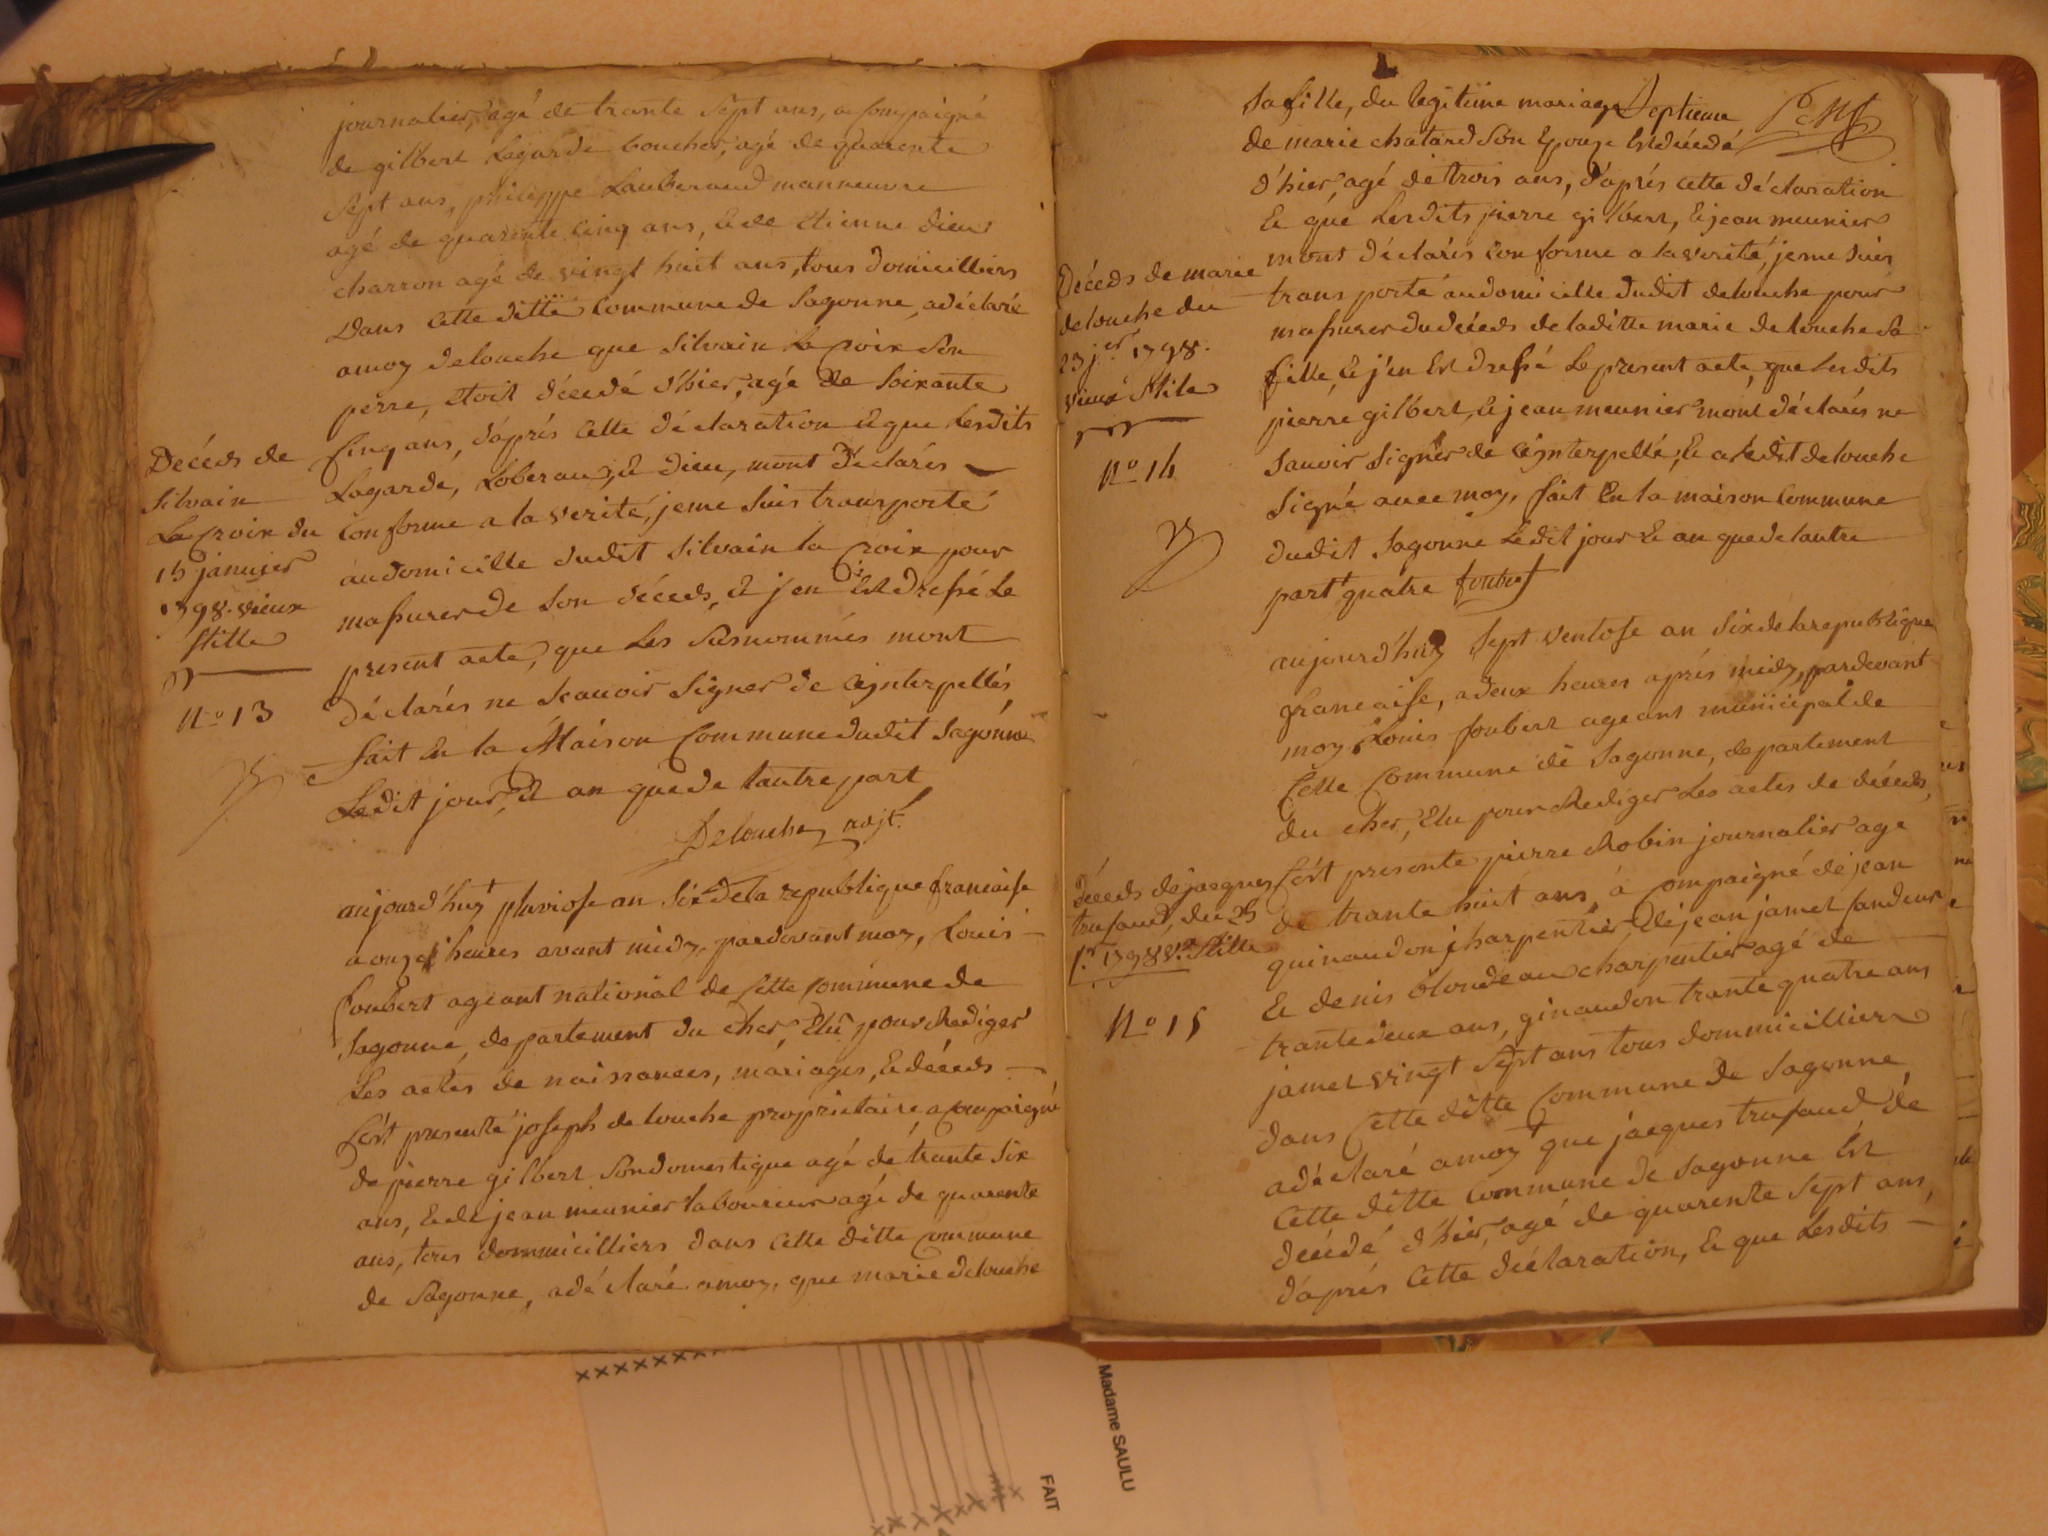 journalier, agé de trante sept ans, acompaigné
de gilbert Lagarde boucher, agé de quarente
sept ans, philippe Lauberaud manneuvre
agé de quarente cinq ans, & de Etienne dieu
charron agé de vingt huit ans, tous domicilliers
Dans cette ditte commune de Sagonne, a déclaré
amoy delouche que Silvain La croix son
perre, etoit décédé d'hier, agé de soixante
Cinq ans, d'aprés cette déclaration & que Lesdits
Lagarde, Loberau, & Dieu, mont déclarés
Conforme a la verité, je me suis transporté
au domicille dudit Silvain la croix pour
massurer de son décéds, & j'en Est dressé Le
present acte, que Les susnommés mont
déclarés ne scauoir signer de ce jnterpellés,
fait En la Maison Commune dudit Sagonne
Ledit jour & an que de lautre part
Delouche adjt.
Décéds de
Silvain
La croix du
15 janvier
1798. vieux
stille
No 13
aujourd'huy pluviose an six de la republique francaise
a onze heures avant midy, pardevant moy, Louis
foubert ageant national de cette commune de
Sagonne, departement du cher, Elu pour Rediger
Les actes de naissances, mariages, & décéds
s'est presenté joseph delouche proprietaire, acompaigné
de pierre gilbert son domestique agé de trante six
ans, & de jean meunier laboureur agé de quarente
ans, tous dommicilliers dans cette ditte commune
de Sagonne, a déclaré amoy, que marie delouche
Sa fille, du legitime mariage Septieme
de marie chatard son Epouze Est décédé
d'hier, agé de trois ans, d'aprés cette déclaration
& que Lesdits pierre gilbert, & jean meunier
mont déclarés conforme a la verité, je me suis
transporté au domicille dudit delouche pour
massurer du décéds de laditte marie delouche sa
fille, & j'en Est dressé Le present acte, que Lesdits
pierre gilbert, & jean meunier mont déclarés ne
savoir signer de ce jnterpellé, & a ledit delouche
signé avec moy, fait En la maison commune
dudit Sagonne Ledit jour & an que de lautre
part quatre foubert
Décéds de marie
delouche du
23 j.er 1798.
vieux stile
No 14
aujourd'huy sept ventose an six de la republique
francaise, a deux heures aprés midy, pardevant
moy Louis foubert ageant municipal de
cette commune de Sagonne, departement
du cher, Elu pour Rediger Les actes de décéds,
s'est presenté pierre Robin journalier agé
de trante huit ans, acompaigné de jean
quinaudon charpentier, & de jean jamet fandeur
& denis blondeau charpentier agé de
trante deux ans, ginaudon trante quatre ans
jamet vingt sept ans tous dommicilliers
dans cette ditte commune de Sagonne
a déclaré amoy que jacques trufaud de
cette ditte commune de Sagonne Est
décédé d'hier, agé de quarente sept ans,
d'aprés cette déclaration, & que Lesdits
Décéds de jacques
trufaud, du 25
f.er 1798 v. stille
No 15
Madame SAULU
FAIT